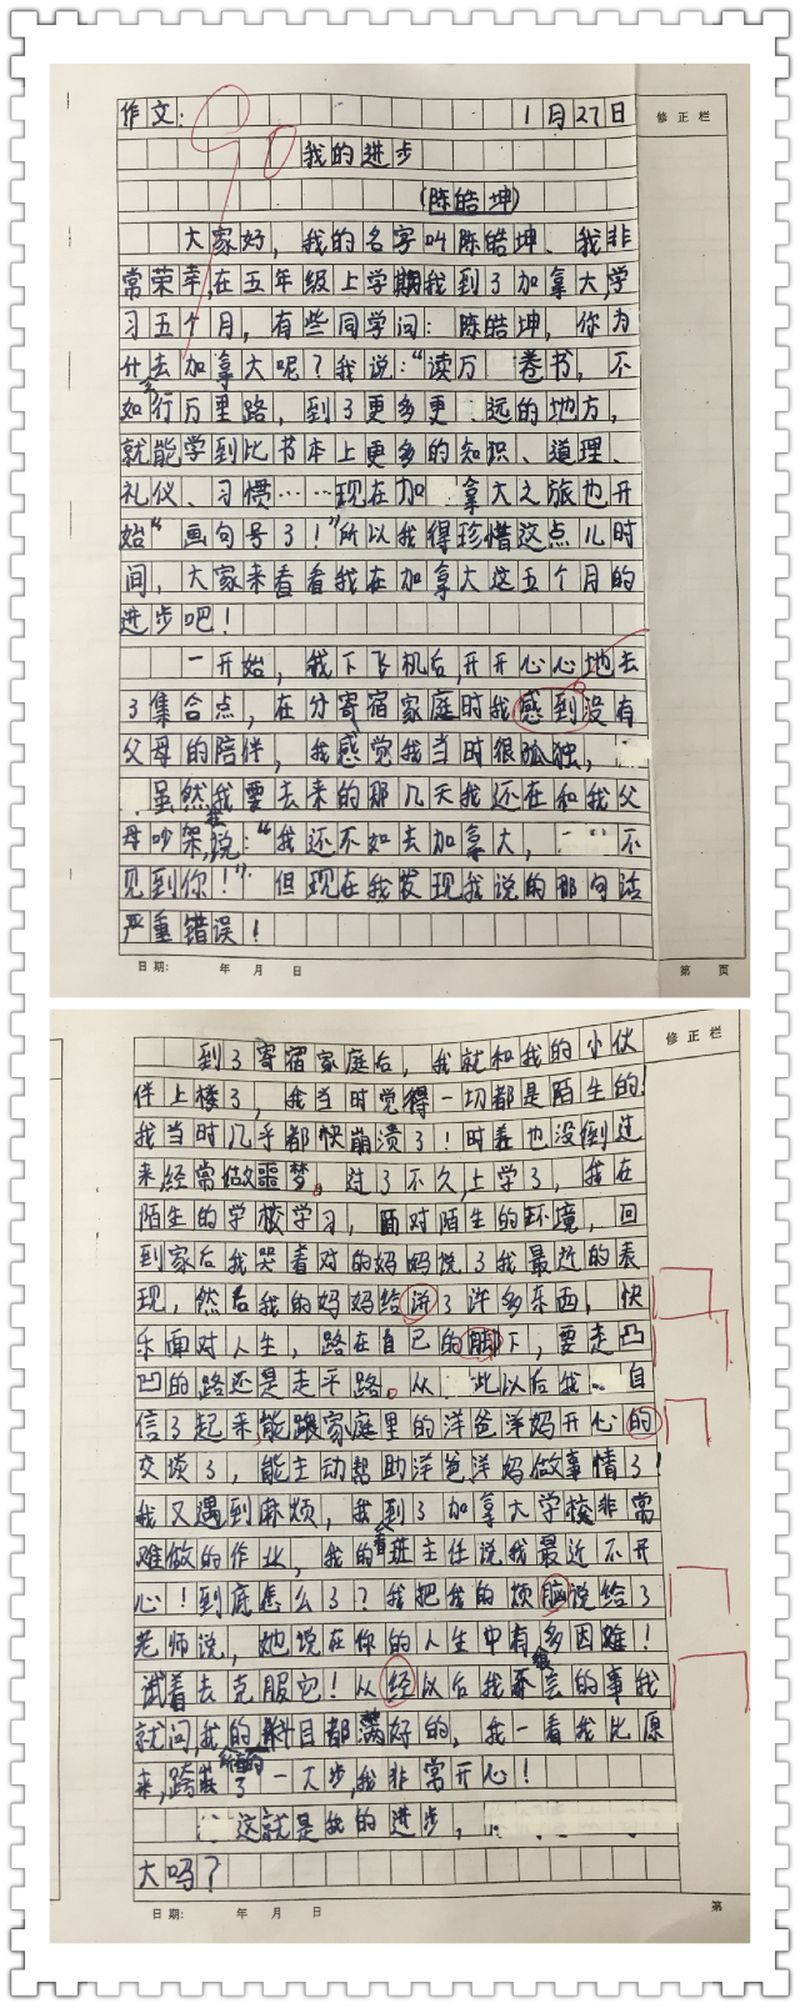 作文： 1月27日
修正栏
90
我的进步
（陈皓坤）
大家好，我的名字叫陈皓坤、我非
常荣幸，在五年级上学期我到了加拿大，学
习五个月，有些同学问：陈皓坤，你为
什么去加拿大呢？我说：“读万卷书，不
如行万里路，到了更多更远的地方，
就能学到比书本上更多的知识、道理、
礼仪、习惯……现在加拿大之旅也开
始“画句号了！”所以我得珍惜这点儿时
间，大家来看看我在加拿大这五个月的
进步吧！
一开始，我下飞机后，开开心心地去
了集合点，在分寄宿家庭时我感到没有
父母的陪伴，我感觉我当时很孤独，
虽然我要去来的那几天我还在和我父
母吵架，我说：“我还不如去加拿大，不
见到你！”但现在我发现我说的那句话
严重错误！
日期： 年 月 日 第 页
修正栏
到了寄宿家庭后，我就和我的小伙
伴上楼了，我当时觉得一切都是陌生的！
我当时几乎都快崩溃了！时差也没倒过
来，经常做噩梦。过了不久，上学了，我在
陌生的学校学习，面对陌生的环境，回
到家后我哭着对的妈妈说了我最近的表
现，然后我的妈妈给讲了许多东西，快
乐面对人生，路在自己的脚下，要走凸
凹的路还是走平路。从此以后我自
信了起来，能跟家庭里的洋爸洋妈开心的
交谈了，能主动帮助洋爸洋妈做事情了！
我又遇到麻烦，我看到了加拿大学校非常
难做的作业，我的班主任说我最近不开
心！到底怎么了？我把我的烦脑说给了
老师说，她说在你的人生中有很多困难！
试着去克服它！从经以后我不会的事我
就问，我的所有的科目都满好的，我一看我比原
来，跨了一大步，我非常开心！
这就是我的进步，
大吗？
日期： 年 月 日 第